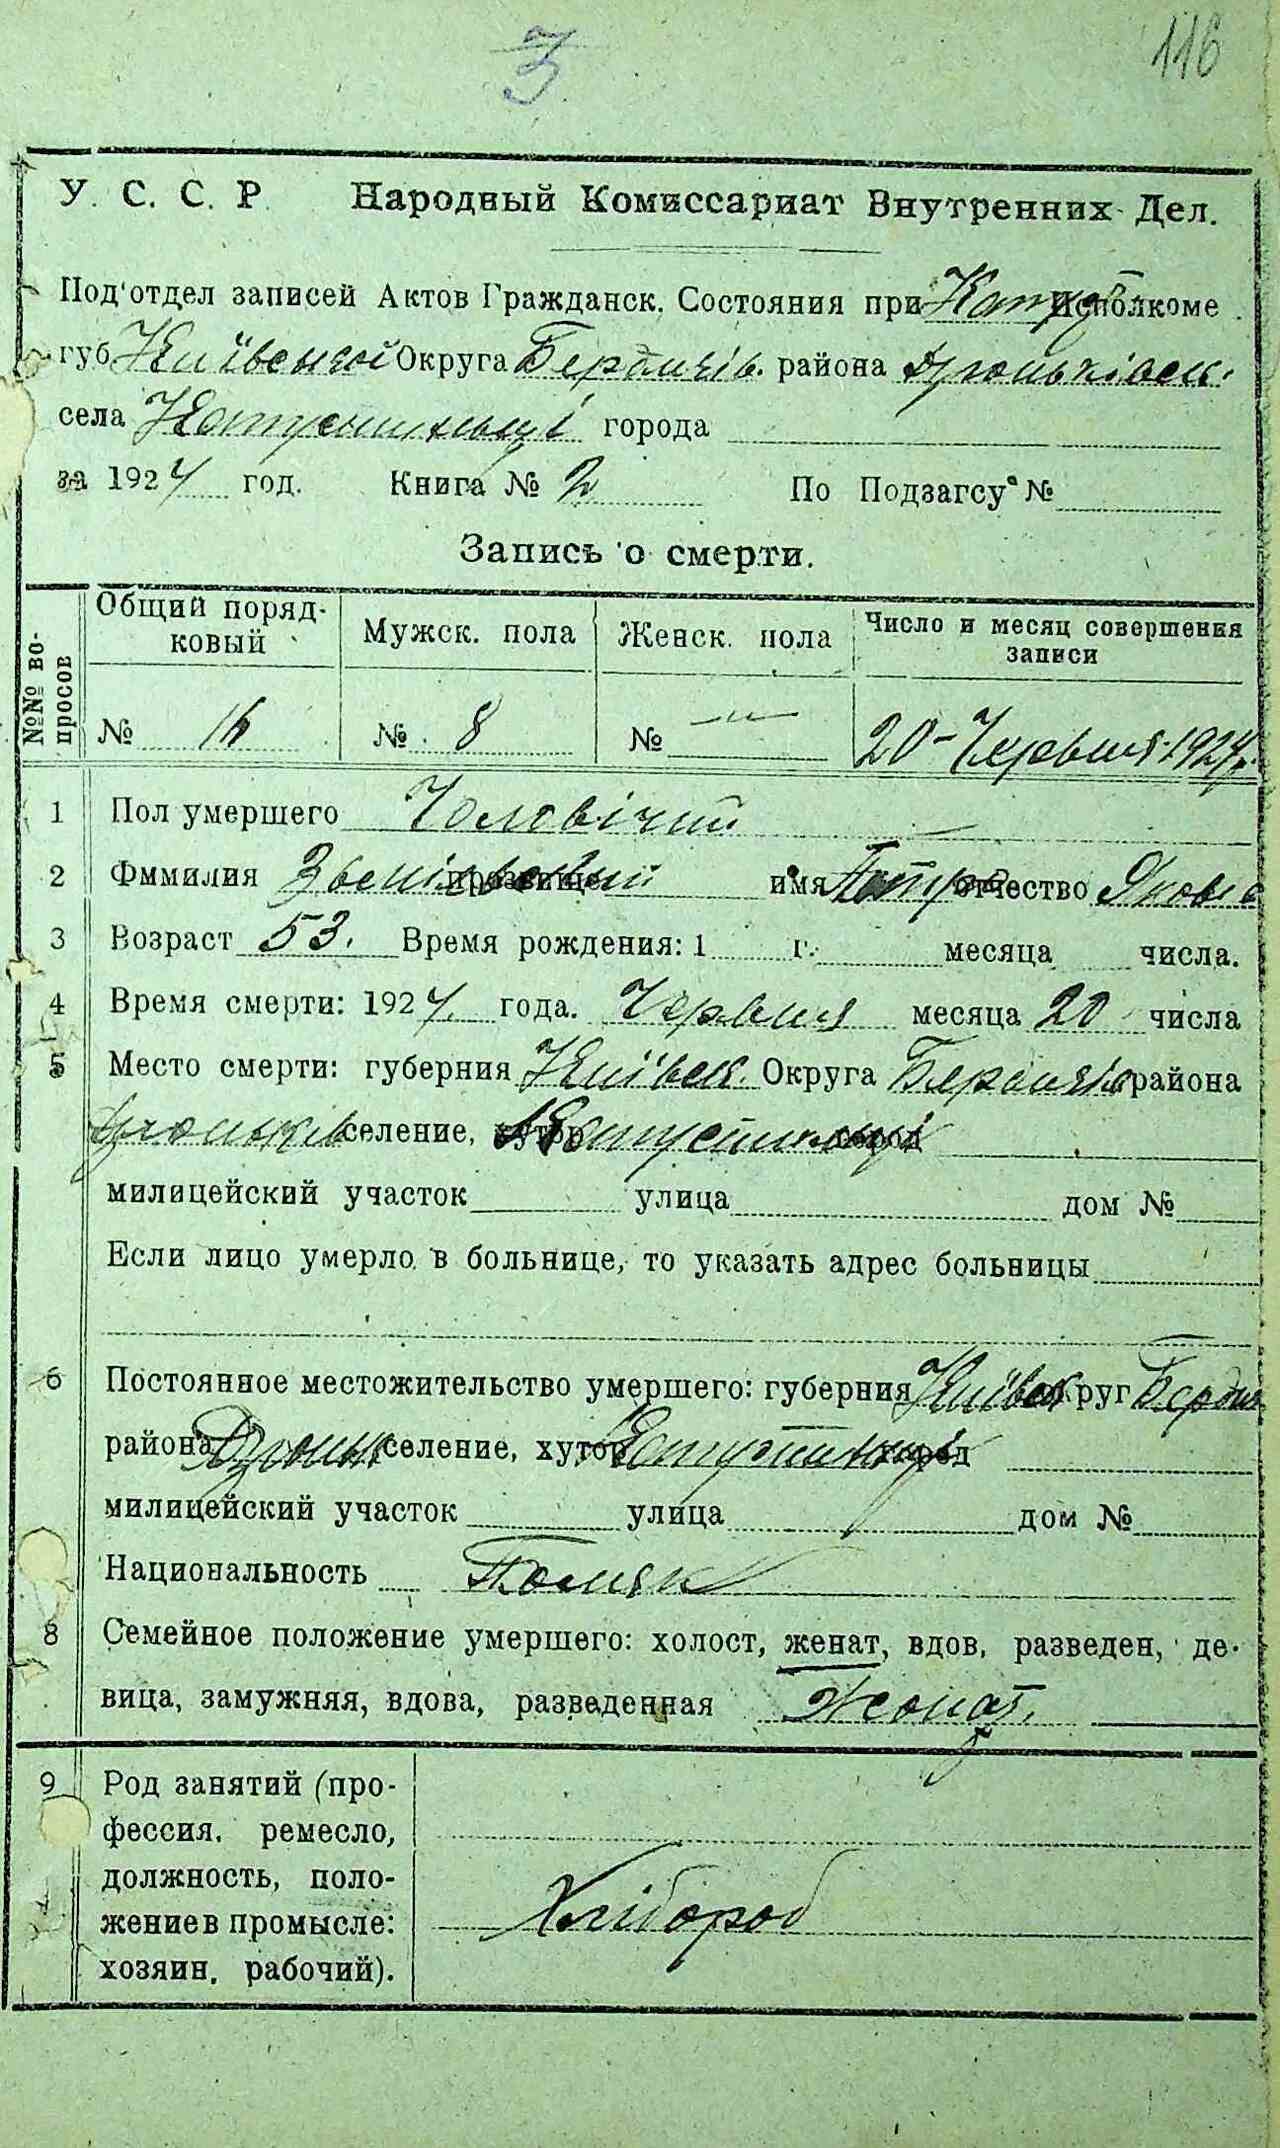 З
116
У. С. С. Р. Народный Комиссариат Внутренних Дел.
Под'отдел записей Актов Гражданск. Состояния при исполкоме
губ Київської Округа Бердичів. района Дзюньківськ.
села города
за 1924 год. Книга № 2 По Подзагсу №
Запись о смерти.
№№ вопросов
Общий поряд-
ковый
Мужск. пола Женск. пола Число и месяц совершения
записи
№ 16 № 8 № —"— 20-Червня 1924 р.
1 Пол умершего Чоловічий
2 Фммилия прозвище имя Петро отчество Яковів
3 Возраст 53. Время рождения: 1 г. месяца числа.
4 Время смерти: 1924. года. Червня месяца 20 числа
5 Место смерти: губерния Київськ. Округа Бердичів района
Дзюньків селение, хутор город
милицейский участок улица дом №
Если лицо умерло в больнице, то указать адрес больницы
6 Постоянное местожительство умершего: губерния Київськ округ Бердич
района Дзюньк селение, хутор город
милицейский участок улица дом №
Национальность Поляк
8 Семейное положение умершего: холост, женат, вдов, разведен, де-
вица, замужняя, вдова, разведенная Жонат.
9 Род занятий (про-
фессия, ремесло,
должность, поло-
жение в промысле:
хозяин, рабочий).
Хлібороб